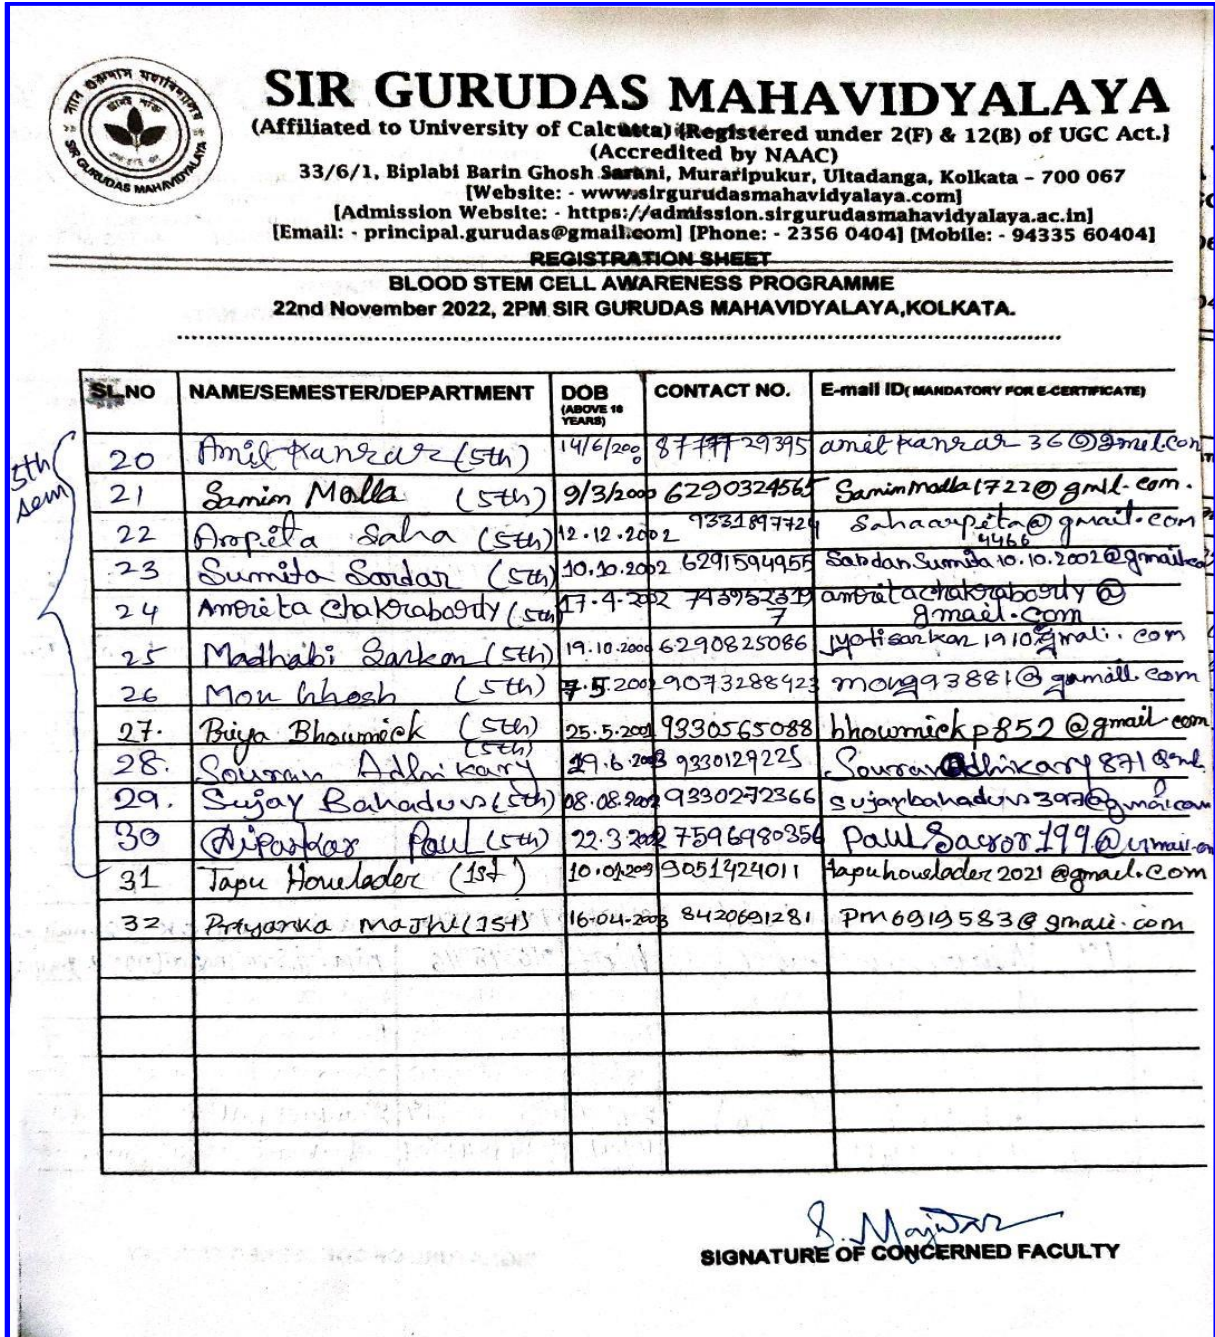 স্যার গুরুদাস মহাবিদ্যালয়
SIR GURUDAS MAHAVIDYALAYA
SIR GURUDAS MAHAVIDYALAYA
(Affiliated to University of Calcutta) {Registered under 2(F) & 12(B) of UGC Act.}
(Accredited by NAAC)
33/6/1, Biplabi Barin Ghosh Sarani, Muraripukur, Ultadanga, Kolkata - 700 067
[Website: - www.sirgurudasmahavidyalaya.com]
[Admission Website: - https://admission.sirgurudasmahavidyalaya.ac.in]
[Email: - principal.gurudas@gmail.com] [Phone: - 2356 0404] [Mobile: - 94335 60404]
REGISTRATION SHEET
BLOOD STEM CELL AWARENESS PROGRAMME
22nd November 2022, 2PM SIR GURUDAS MAHAVIDYALAYA,KOLKATA.
SL.NO NAME/SEMESTER/DEPARTMENT DOB (ABOVE 18 YEARS) CONTACT NO. E-mail ID( MANDATORY FOR E-CERTIFICATE)
5th sem
20 Amit Kanrar (5th) 14/6/2000 8777729395 amit kanrar 36@gmel.com
21 Samim Molla (5th) 9/3/2000 6290324565 Samimmolla1722@gmil.com.
22 Aropita Saha (5th) 12.12.2002 9331897724 Sahaarpita4466@gmail.com
23 Sumita Sardar (5th) 10.10.2002 6291594955 Sardar Sumita 10.10.2002@gmail.co
24 Amrita Chakraborty (5th) 17.4.2002 7439523197 amritachakraborty@gmail.com
25 Madhabi Sarkar (5th) 19.10.200 6290825086 jyotisarkar1910@gmail.com
26 Mou Ghosh (5th) 7.5.2002 9073288423 moug93881@gamill.com
27. Priya Bhowmick (5th) 25.5.2001 9330565088 bhowmickp852@gmail.com
28. Sourav Adhikary (5th) 19.6.2003 9330129225 SouravAdhikary871@
29. Sujay Bahadur (5th) 08.08.2002 9330272366 sujaybahadur397@gmai.com
30 Dipankar Paul (5th) 22.3.2002 7596980356 Paul Sagor199@gmail.
31 Tapu Howlader (1st) 10.01.200 9051424011 tapuhowlader2021@gmail.com
32 Priyanka Majhi (1st) 16-04-2003 8420691281 pm6919583@gmail.com
S. Majumdar
SIGNATURE OF CONCERNED FACULTY